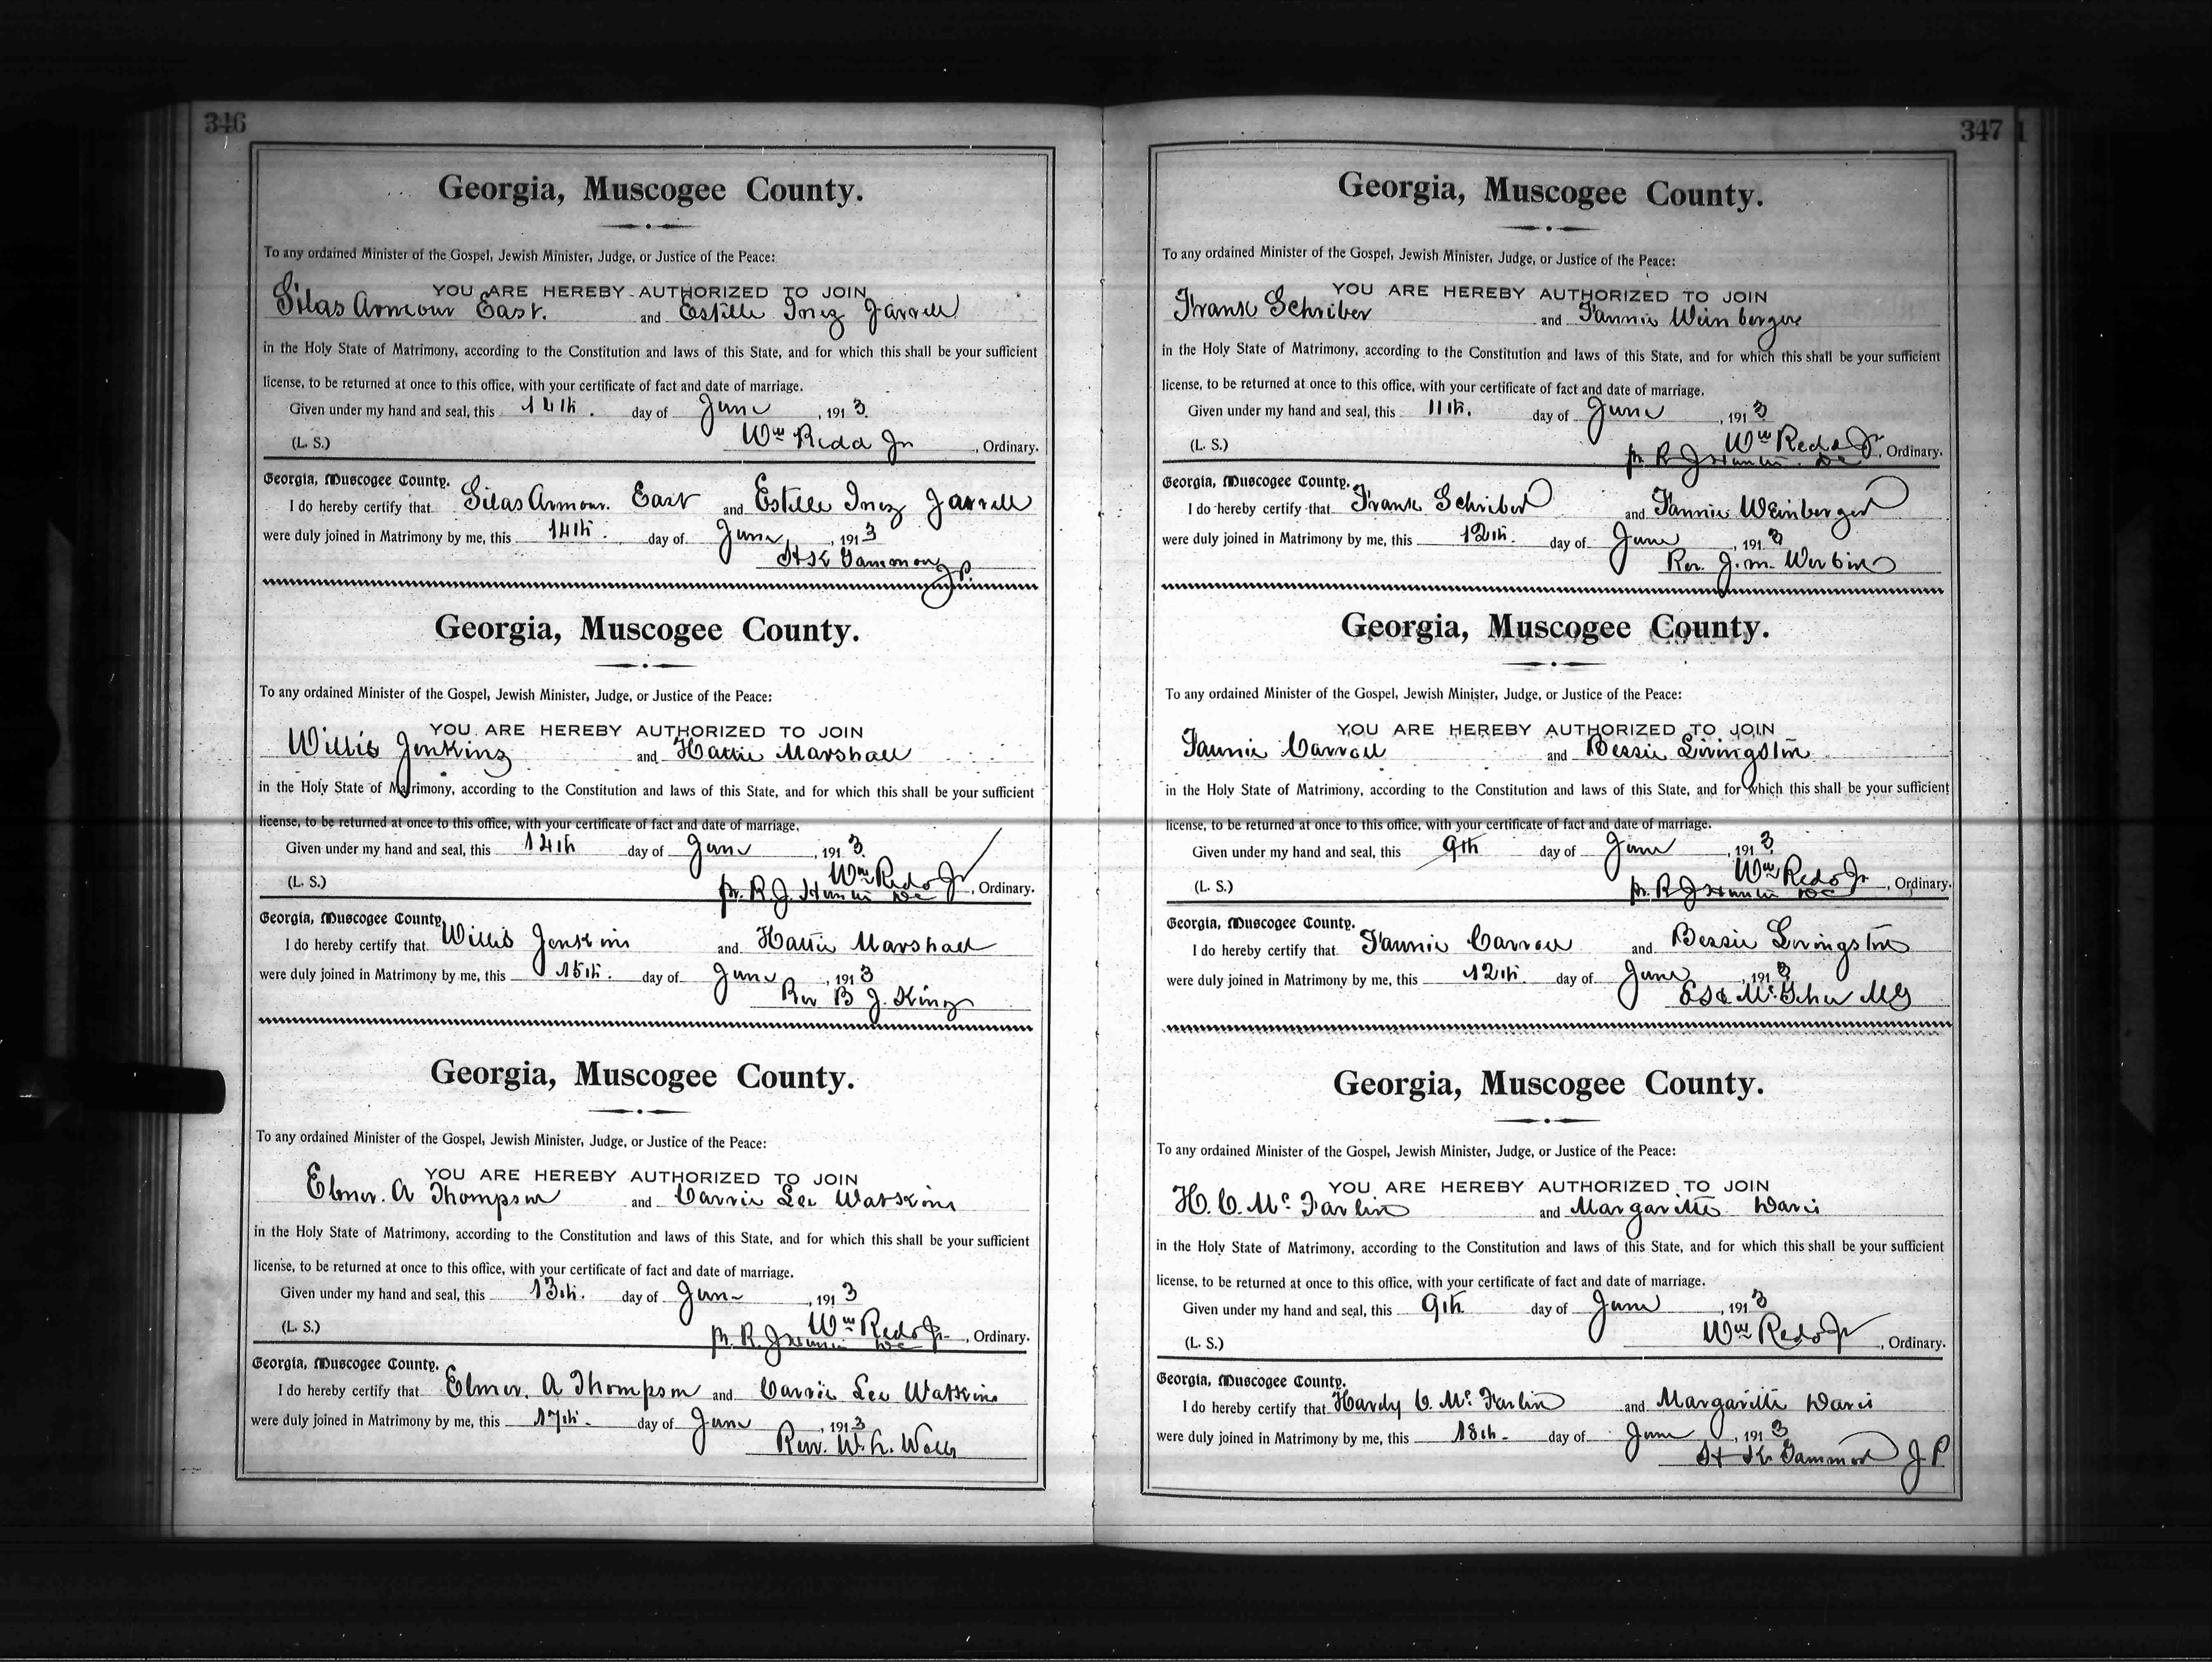 346
Georgia, Muscogee County.
To any ordained Minister of the Gospel, Jewish Minister, Judge, or Justice of the Peace:
YOU ARE HEREBY AUTHORIZED TO JOIN
Silas Armour East. and Estille Inez Jarrell
in the Holy State of Matrimony, according to the Constitution and laws of this State, and for which this shall be your sufficient
license, to be returned at once to this office, with your certificate of fact and date of marriage.
Given under my hand and seal, this 14th. day of June, 1913.
Wm Redd Jr
(L. S.) , Ordinary.
Georgia, Muscogee County.
I do hereby certify that Silas Armour. East and Estelle Inez Jarrell
were duly joined in Matrimony by me, this 14th. day of June, 1913
H K Gammon J.P.
Georgia, Muscogee County.
To any ordained Minister of the Gospel, Jewish Minister, Judge, or Justice of the Peace:
YOU ARE HEREBY AUTHORIZED TO JOIN
Willis Jenkins and Hattie Marshall
in the Holy State of Matrimony, according to the Constitution and laws of this State, and for which this shall be your sufficient
license, to be returned at once to this office, with your certificate of fact and date of marriage.
Given under my hand and seal, this 14th day of June, 1913.
Wm Redd Jr
(L. S.) pr. R. J. Hunter DC , Ordinary.
Georgia, Muscogee County.
I do hereby certify that Willis Jenkins and Hattie Marshall
were duly joined in Matrimony by me, this 15th. day of June, 1913
Rev B J. King
Georgia, Muscogee County.
To any ordained Minister of the Gospel, Jewish Minister, Judge, or Justice of the Peace:
YOU ARE HEREBY AUTHORIZED TO JOIN
Elmer. A Thompson and Carrie Lee Watkins
in the Holy State of Matrimony, according to the Constitution and laws of this State, and for which this shall be your sufficient
license, to be returned at once to this office, with your certificate of fact and date of marriage.
Given under my hand and seal, this 13th. day of June, 1913
Wm Redd Jr
(L. S.) pr. R. J. Hunter DC , Ordinary.
Georgia, Muscogee County.
I do hereby certify that Elmer. A Thompson and Carrie Lee Watkins
were duly joined in Matrimony by me, this 17th. day of June, 1913
Rev. W. L.
347
Georgia, Muscogee County.
To any ordained Minister of the Gospel, Jewish Minister, Judge, or Justice of the Peace:
YOU ARE HEREBY AUTHORIZED TO JOIN
Frank Schriber and Fannie Weinberger
in the Holy State of Matrimony, according to the Constitution and laws of this State, and for which this shall be your sufficient
license, to be returned at once to this office, with your certificate of fact and date of marriage.
Given under my hand and seal, this 11th. day of June, 1913
Wm Redd Jr
(L. S.) pr R J Hunter. DC , Ordinary.
Georgia, Muscogee County.
I do hereby certify that Frank Schriber and Fannie Weinberger
were duly joined in Matrimony by me, this 12th. day of June, 1913
Rev. J. M.
Georgia, Muscogee County.
To any ordained Minister of the Gospel, Jewish Minister, Judge, or Justice of the Peace:
YOU ARE HEREBY AUTHORIZED TO JOIN
Fannie Carroll and Bessie Livingston
in the Holy State of Matrimony, according to the Constitution and laws of this State, and for which this shall be your sufficient
license, to be returned at once to this office, with your certificate of fact and date of marriage.
Given under my hand and seal, this 9th day of June, 1913
Wm Redd Jr
(L. S.) pr. R J Hunter DC , Ordinary.
Georgia, Muscogee County.
I do hereby certify that Fannie Carroll and Bessie Livingston
were duly joined in Matrimony by me, this 12th. day of June, 1913
MG
Georgia, Muscogee County.
To any ordained Minister of the Gospel, Jewish Minister, Judge, or Justice of the Peace:
YOU ARE HEREBY AUTHORIZED TO JOIN
H. C. Mc Farlin and Margaritte Davis
in the Holy State of Matrimony, according to the Constitution and laws of this State, and for which this shall be your sufficient
license, to be returned at once to this office, with your certificate of fact and date of marriage.
Given under my hand and seal, this 9th day of June, 1913
Wm Redd Jr
(L. S.) , Ordinary.
Georgia, Muscogee County.
I do hereby certify that Hardy C. Mc Farlin and Margaritte Davis
were duly joined in Matrimony by me, this 18th. day of June, 1913
H K Gammon J P